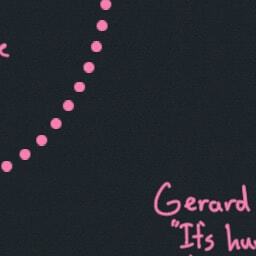 Gerard
"Ifs hu